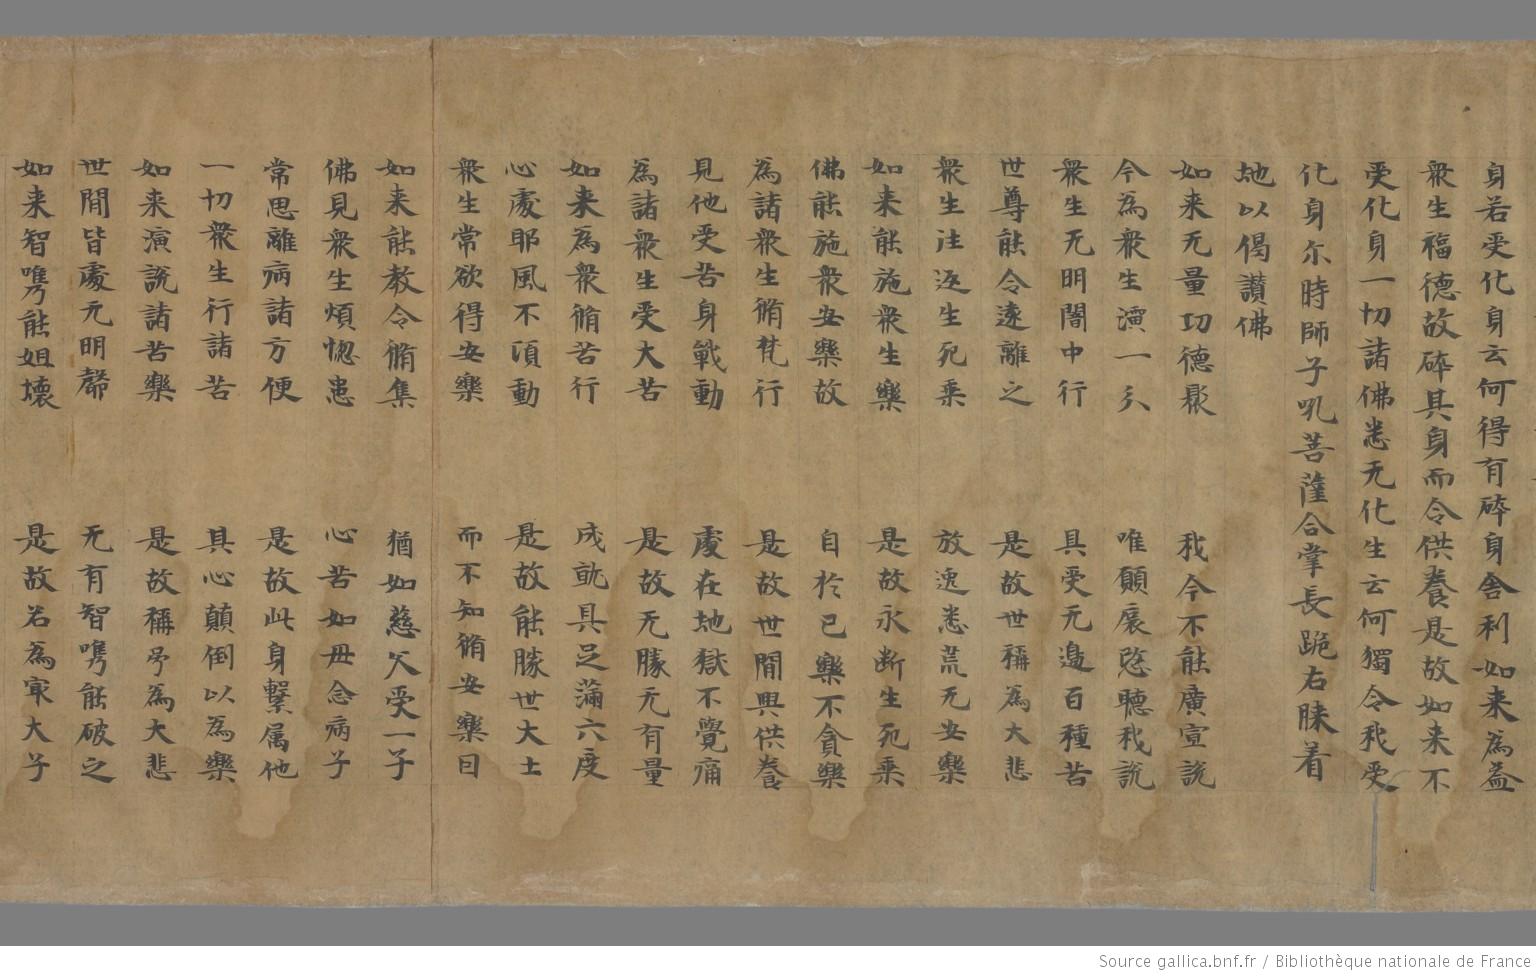 身若受化身云何得有碎身舍利如来為益
衆生福德故碎其身而令供養是故如来不
受化身一切諸佛悉无化生云何獨令我受
化身尔時師子吼菩薩合掌長跪右膝着
地以偈讃佛
如来无量功德聚 我今不能廣宣說
今為衆生演一分 唯願哀愍聽我說
衆生无明闇中行 具受无邊百種苦
世尊能令遠離之 是故世稱為大悲
衆生往返生死𮈔 放逸悉荒无安樂
如来能施衆生樂 是故永断生死𮈔
佛能施衆安樂故 自於已樂不貪樂
為諸衆生脩梵行 是故世間興供養
見他受苦身戰動 處在地獄不覺痛
為諸衆生受大苦 是故无勝无有量
如来為衆脩苦行 成就具足滿六度
心處耶風不傾動 是故能勝世大士
衆生常欲得安樂 而不知脩安樂曰
如来能教令脩集 猶如慈父受一子
佛見衆生煩惱患 心苦如毋念病子
常思離病諸方便 是故此身繫属他
一切衆生行諸苦 其心顛倒以為樂
如来演說諸苦樂 是故稱号為大悲
世間皆處无明㲉 无有智嘴能破之
如来智嘴能姐壞 是故名為㝡大子
Source gallica.bnf.fr / Bibliothèque nationale de France